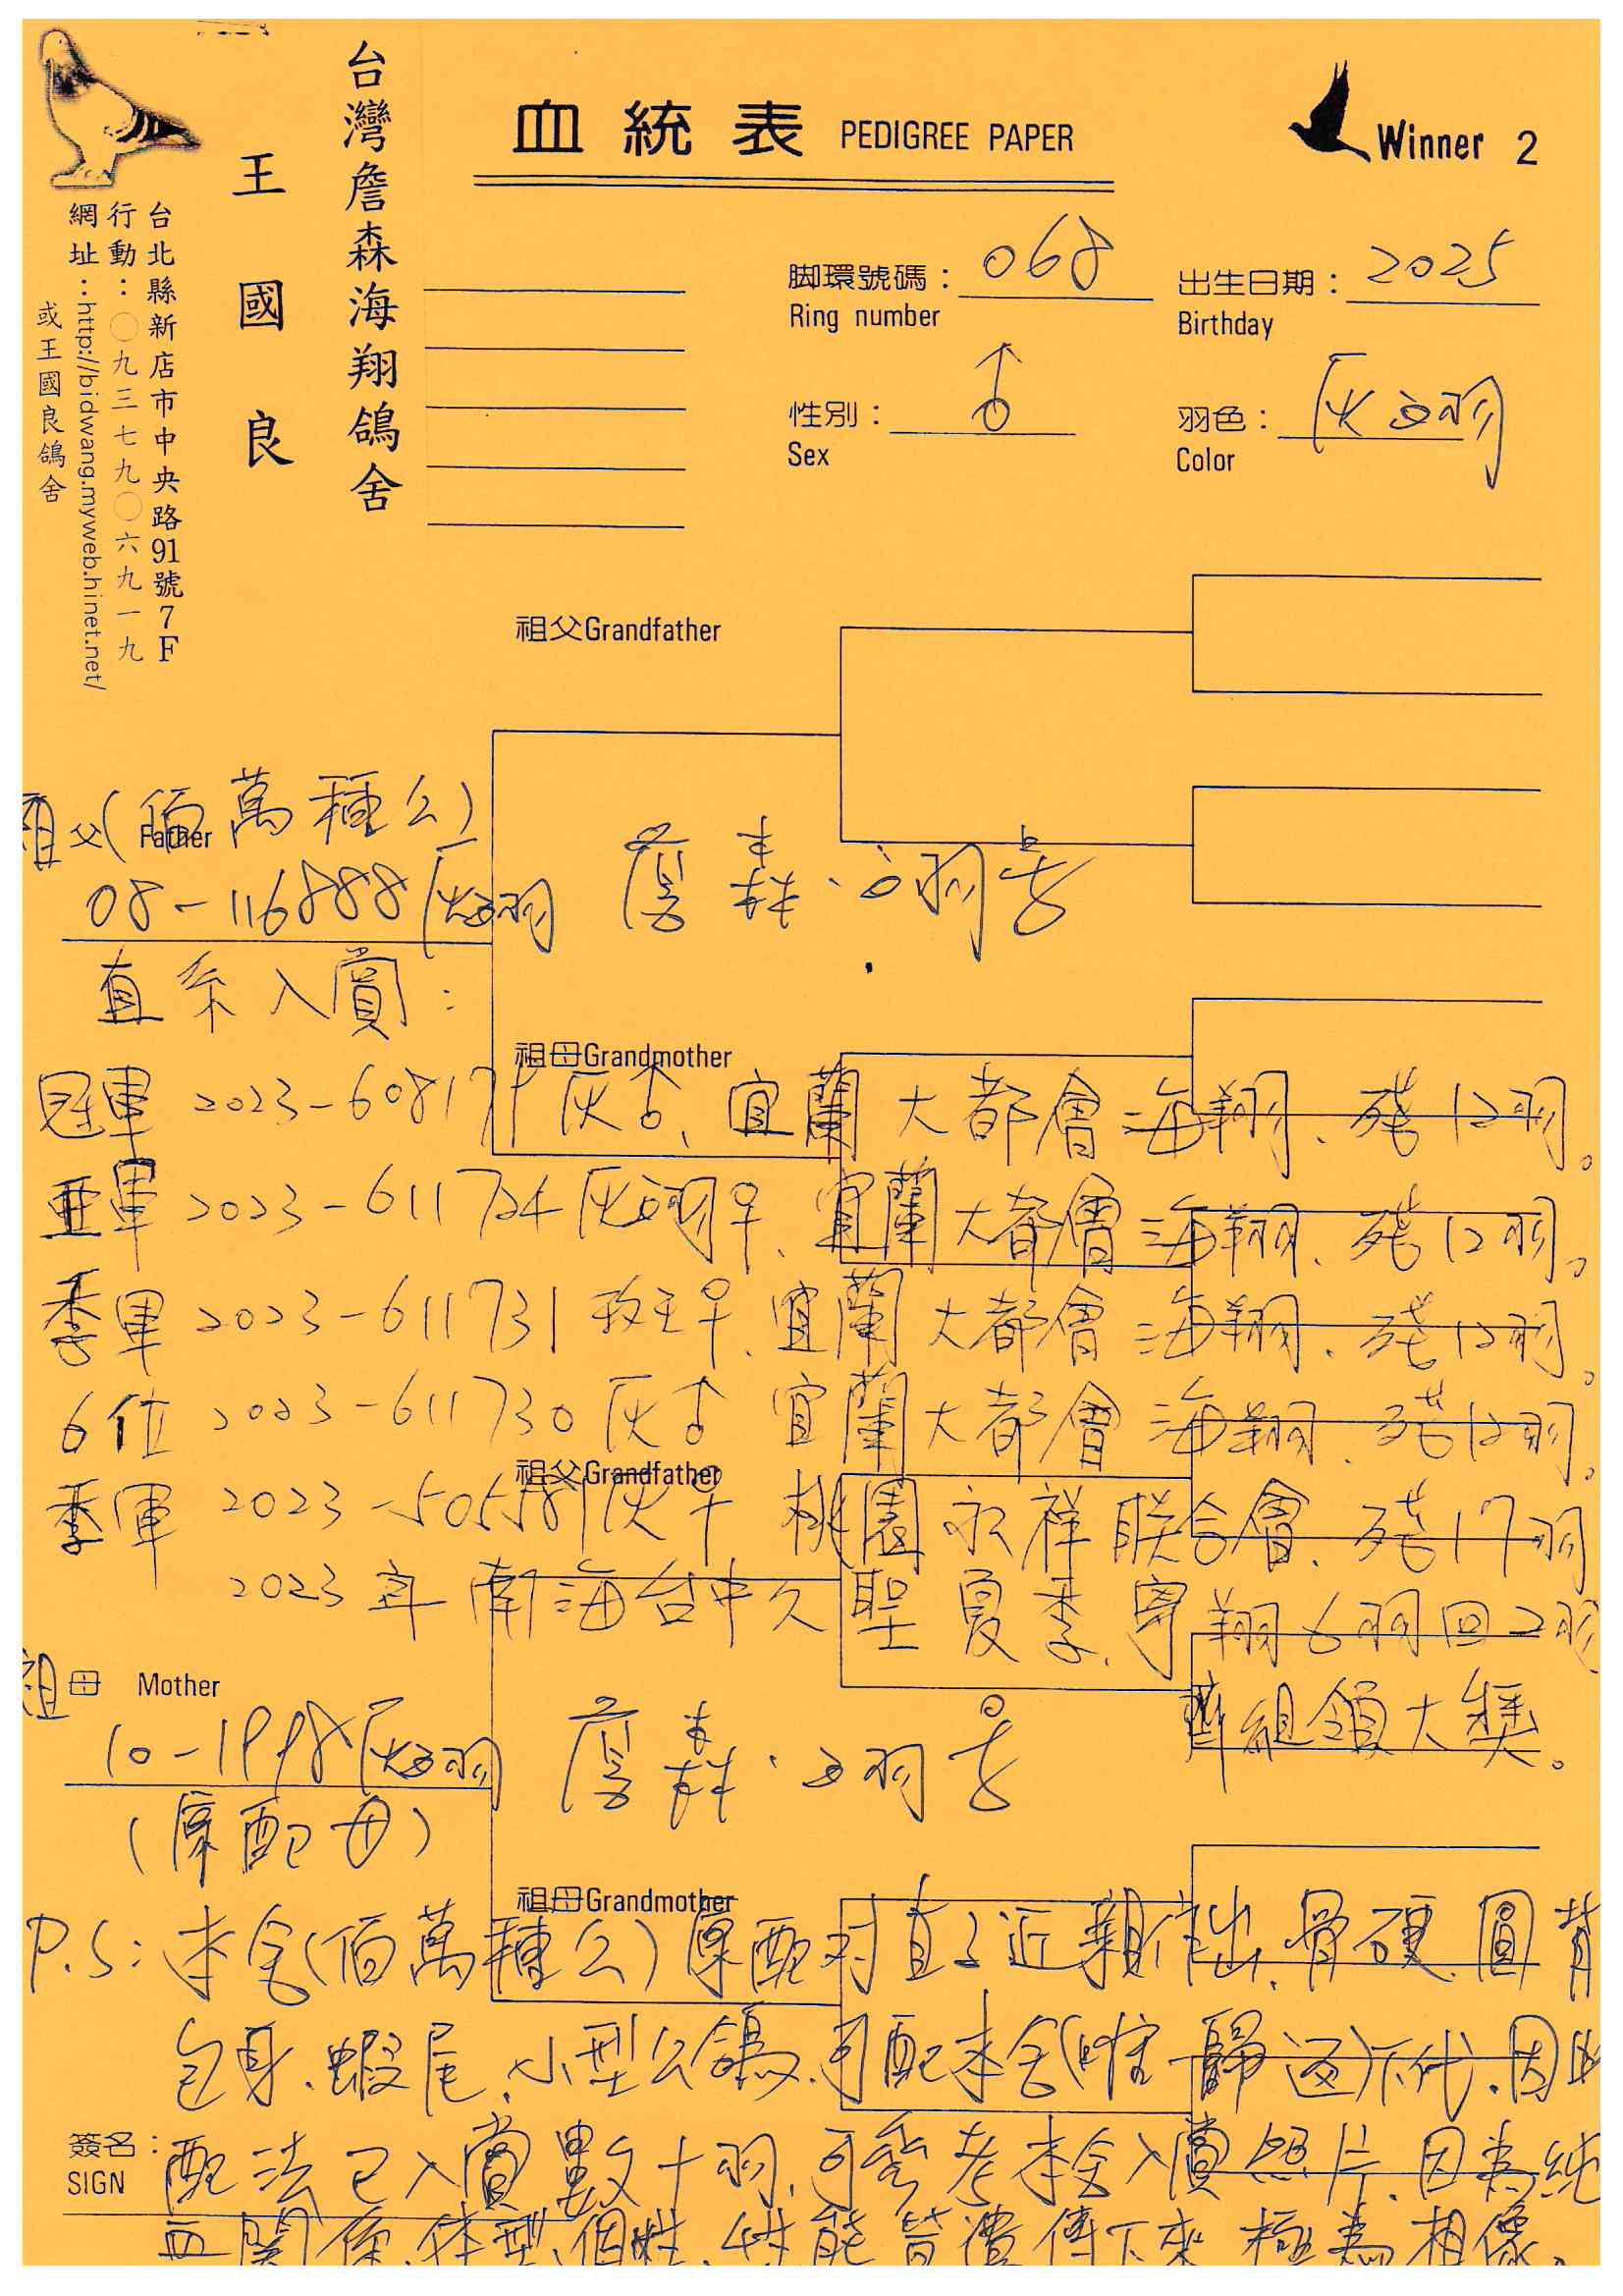 台灣詹森海翔鴿舍
王國良
台北縣新店市中央路91號7F
行動：〇九三七九〇六九一九
網址：http://bidwang.myweb.hinet.net/
或王國良鴿舍
血統表 PEDIGREE PAPER
Winner 2
脚環號碼： 068
Ring number
出生日期： 2025
Birthday
性別： ♂
Sex
羽色： 灰白羽
Color
祖父Grandfather
祖父 Father (佰萬種公)
08-116888 灰白羽
詹森·白羽號 ♂
直系入賞：
祖母Grandmother
冠軍 2023-608171 灰♂、宜蘭大都會海翔、殘12羽。
亜軍 2023-611724 灰白羽♀、宜蘭大都會海翔、殘12羽。
季軍 2023-611731 ♀、宜蘭大都會海翔、殘12羽。
6位 2023-611730 灰♂ 宜蘭大都會海翔、殘12羽。
祖父Grandfather
季軍 2023-505581 灰♀ 桃園永祥联合會、殘17羽
2023年南海台中久聖夏季、寄翔6羽回2羽
齊組領大獎。
祖母 Mother
10-1998 灰白羽
詹森·白羽號 ♀
(原配母)
祖母Grandmother
P.S：本舍(佰萬種公)原配对直子近親作出、骨硬、圓背
包身、蝦尾、小型公鴿、可配本舍(歸返)下代、因此
簽名：
SIGN
配法已入賞數十羽、可參考本舍入賞照片、因為純
血関係、体型、個性、性能皆遺傳下來極為相像、